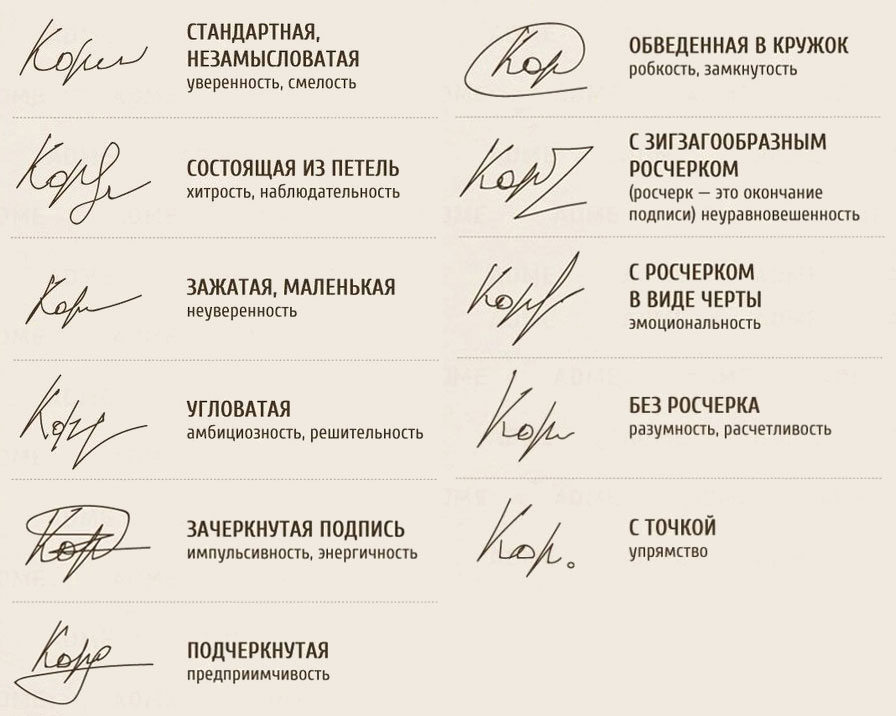 Корил
СТАНДАРТНАЯ,
НЕЗАМЫСЛОВАТАЯ
уверенность, смелость
Кор
СОСТОЯЩАЯ ИЗ ПЕТЕЛЬ
хитрость, наблюдательность
Кор
ЗАЖАТАЯ, МАЛЕНЬКАЯ
неуверенность
Кор
УГЛОВАТАЯ
амбициозность, решительность
Кор
ЗАЧЕРКНУТАЯ ПОДПИСЬ
импульсивность, энергичность
Кор
ПОДЧЕРКНУТАЯ
предприимчивость
Кор
ОБВЕДЕННАЯ В КРУЖОК
робкость, замкнутость
Кор
С ЗИГЗАГООБРАЗНЫМ
РОСЧЕРКОМ
(росчерк — это окончание
подписи) неуравновешенность
Кор
С РОСЧЕРКОМ
В ВИДЕ ЧЕРТЫ
эмоциональность
Кор
БЕЗ РОСЧЕРКА
разумность, расчетливость
Кор.
С ТОЧКОЙ
упрямство